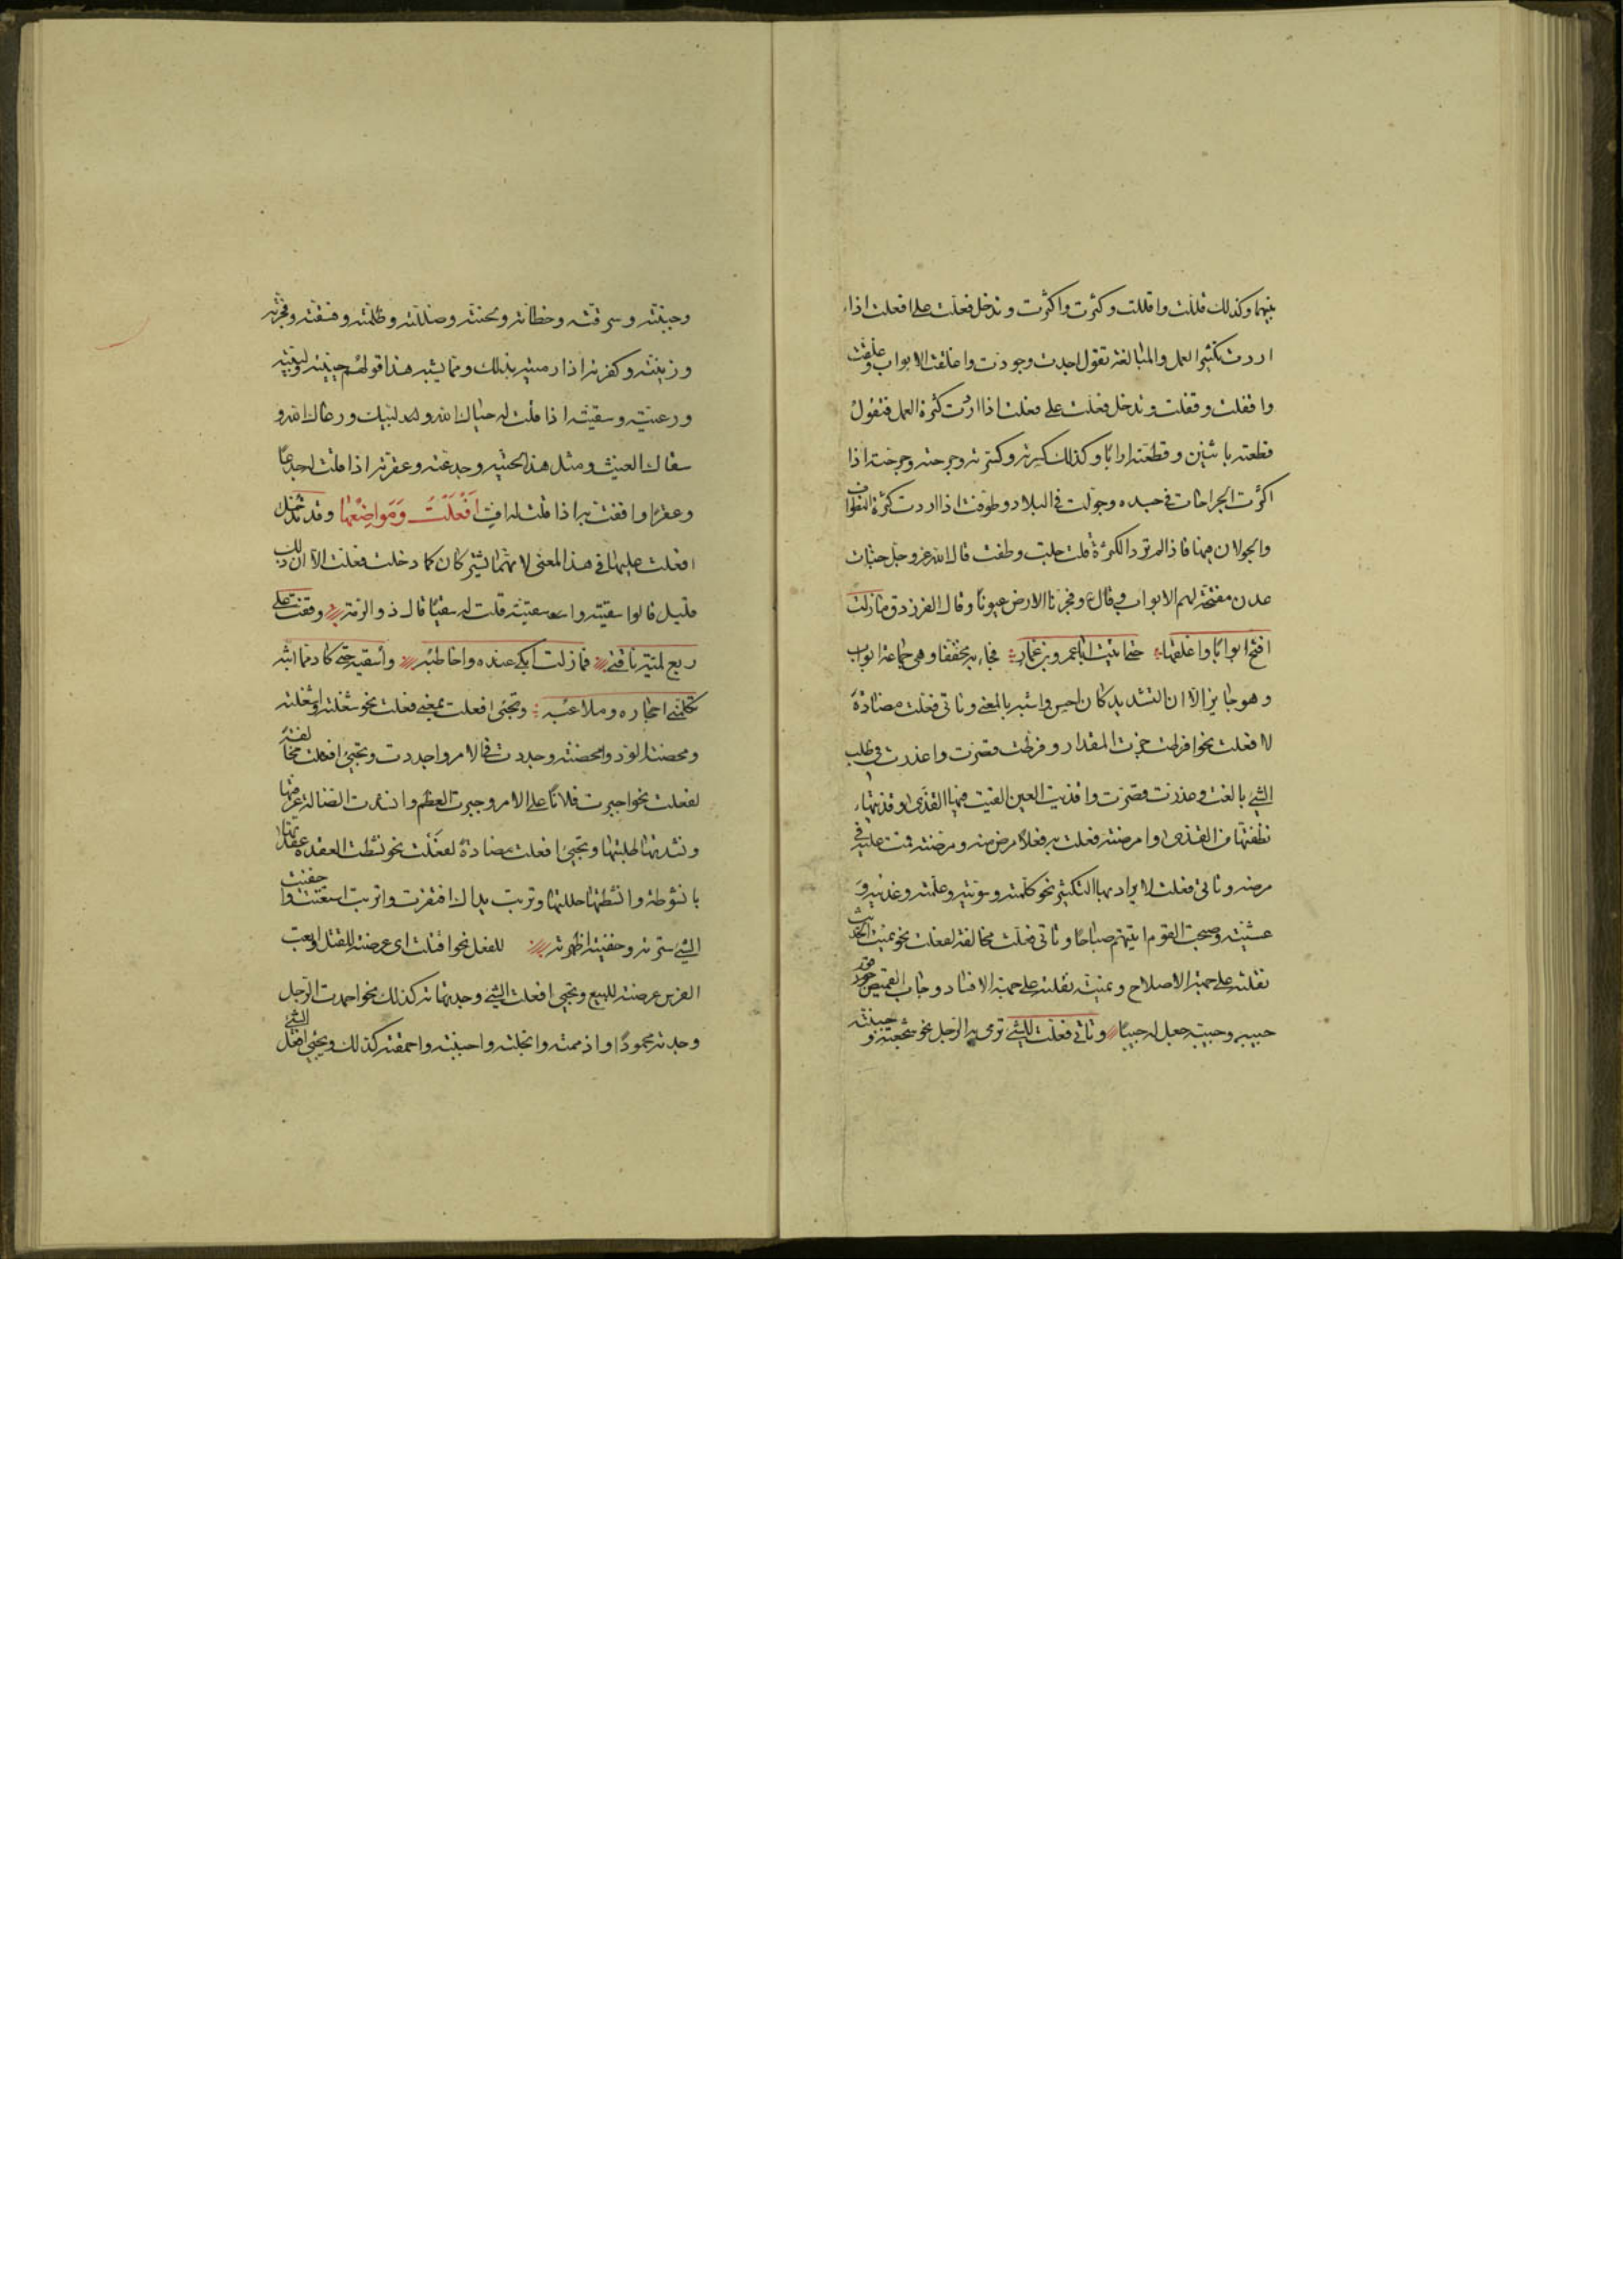 بينهما وكذلك قللت واقللت وكثرت واكثرت وتدخل فعلت على افعلت اذا
اردت تكثير العمل والمبالغة تقول اجدت وجودت واغلقت الابواب وغلقت
واقفلت وقفلت وتدخل فعلت على فعلت اذا اردت كثرة العمل فتقول
قطعته باثنين وقطعته ارابا وكذلك كسرته وكسرته وجرحته وجرحته اذا
اكثرت الجراحات في جسده وجولت في البلاد وطوفت اذا اردت كثرة التطواف
والجولان فيها فاذا لم ترد الكثرة قلت جلت وطفت قال الله عز وجل جنات
عدن مفتحة لهم الابواب وقال وفجرنا الارض عيونا وقال الفرزدق ما زلت
افتح ابوابا واغلقها حتى اتيت ابا عمرو بن عمار فجاء به مخففا وهي جماعة ابواب
وهو جايز الا ان التشديد كان احسن واشبه بالمعنى وتاتي فعلت مضادة
لافعلت نحو افرطت جزت المقدار وفرطت قصرت واعذرت في طلب
الشيء بالغت وعذرت قصرت واقذيت العين القيت فيها القذى وقذيتها
نظفتها من القذى وامرضته فعلت به فعلا مرض منه ومرضته قمت عليه في
مرضه وتاتي فعلت لا يراد بها التكثير نحو كلمته وسويته وعلمته وغذيته و
عشيته وصبحت القوم اتيتهم صباحا وتاتي فعلت مخالفة لفعلت نحو نميت الحديث
نقلته على جهة الاصلاح ونميته نقلته على جهة الافساد وجاب القميص قور
جيبه وجيبه جعل له جيبا وتاتي فعلت للشيء ترمي به الرجل نحو شجعته وجبنته و
وجبنته وسرقته وخطاته ولحنته وضللته وظلمته وفسقته وفجرته
وزنيته وكفرته اذا رميته بذلك ومما يشبه هذا قولهم حييته ولبيته
ورعيته وسقيته اذا قلت له حياك الله ولبيك ورعاك الله و
سقاك الغيث ومثل هذا لحيته وجدعته وعقرته اذا قلت له جدعا
وعقرا واففت به اذا قلت له اف افعلت ومواضعها وقد تدخل
افعلت عليها في هذا المعنى لانهما يشتركان كما دخلت فعلت الا ان ذلك
قليل قالوا سقيته واسقيته قلت له سقيا قال ذو الرمة وقفت على
ربع لمية ناقتي فما زلت ابكي عنده واخاطبه واسقيه حتى كاد مما ابثه
تكلمني احجاره وملاعبه وتجيء افعلت بمعنى فعلت نحو شغلته واشغلته
ومحضته الود وامحضته وجددت في الامر واجددت وتجيء افعلت مخالفة
لفعلت نحو اجبرت فلانا على الامر وجبرت العظم وانشدت الضالة عرفتها
ونشدتها طلبتها وتجيء افعلت مضادة لفعلت نحو نشطت العقدة عقدتها
بانشوطة وانشطتها حللتها وتربت يداك افتقرت واتربت استغنت واخفيت
الشيء سترته وخفيته اظهرته للفعل نحو اقتلت اي عرضته للقتل وابعت
الفرس عرضته للبيع وتجيء افعلت الشيء وجدتها كذلك نحو احمدت الرجل
وجدته محمودا واذممته وابخلته واجبنته واحمقته كذلك ويجيء افعل الشيء